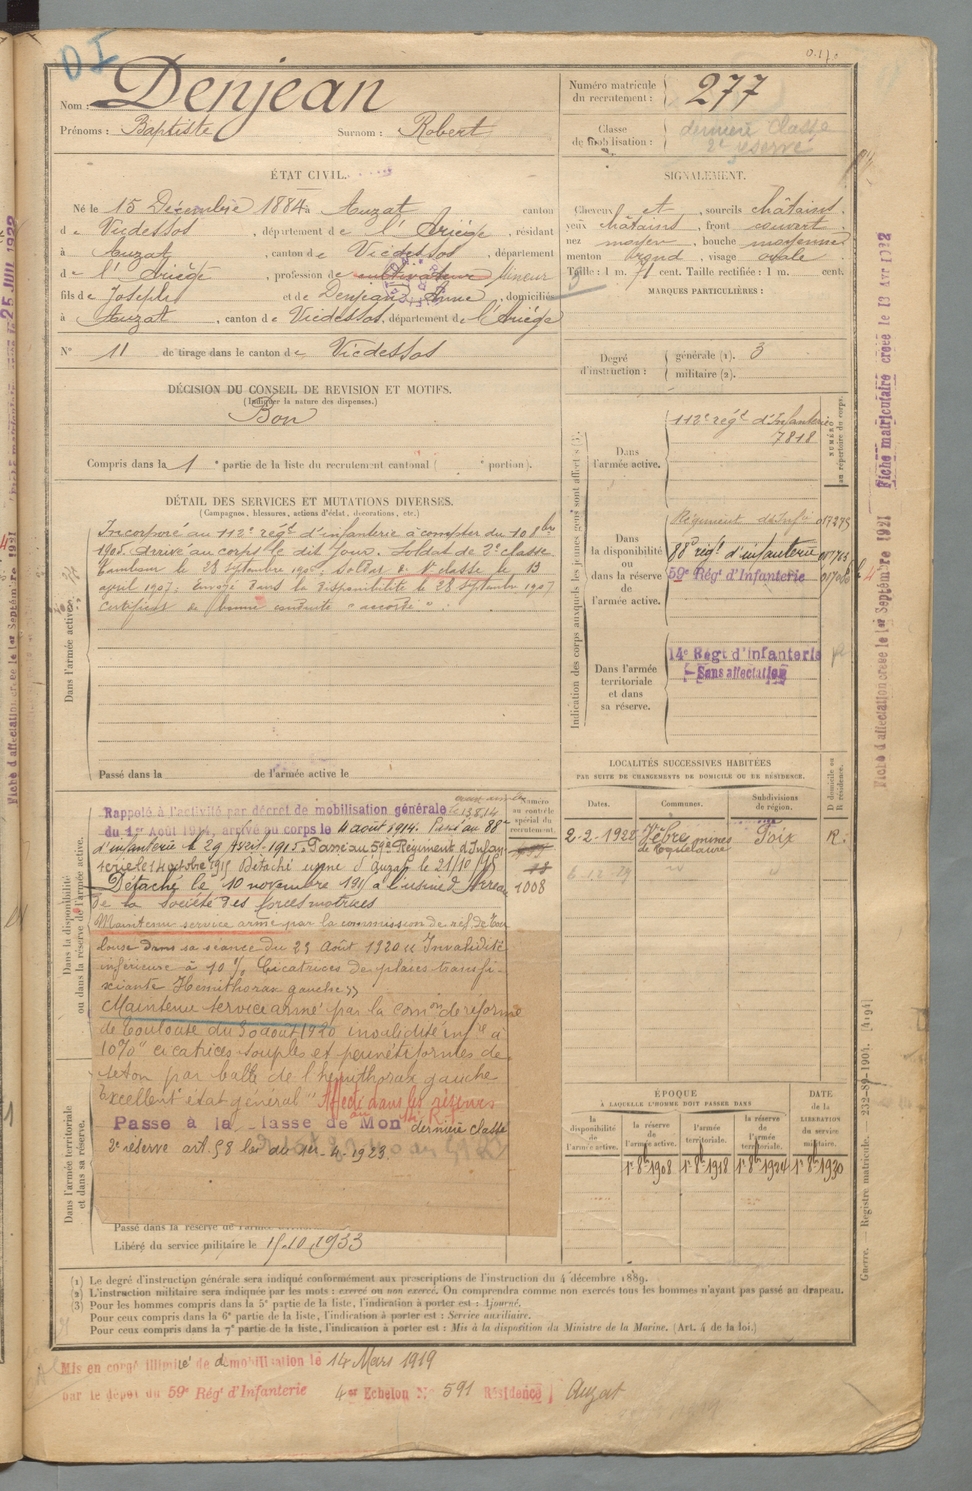 D I
Nom : Denjean
Prénoms : Baptiste Surnom : Robert
Numéro matricule du recrutement : 277
Classe de mobilisation : dernière classe 2e réserve
ÉTAT CIVIL.
Né le 15 Décembre 1884 à Auzat canton
de Vicdessos, département de l'Ariège, résidant
à Auzat, canton de Vicdessos, département
de l'Ariège, profession de cultivateur Mineur
fils de Joseph et de Denjean Anne, domiciliés
à Auzat, canton de Vicdessos, département de l'Ariège
N° 11 de tirage dans le canton de Vicdessos
SIGNALEMENT.
Cheveux et sourcils châtains.
yeux châtains, front couvert
nez moyen, bouche moyenne
menton rond, visage ovale
Taille : 1 m. 71 cent. Taille rectifiée : 1 m. cent.
MARQUES PARTICULIÈRES :
Degré d'instruction : générale (1). 3
militaire (2).
DÉCISION DU CONSEIL DE REVISION ET MOTIFS.
(Indiquer la nature des dispenses.)
Bon
Compris dans la 1e partie de la liste du recrutement cantonal ( e portion).
DÉTAIL DES SERVICES ET MUTATIONS DIVERSES.
(Campagnes, blessures, actions d'éclat, décorations, etc.)
Dans l'armée active.
Incorporé au 112e régt d'infanterie à compter du 10 8bre
1905. Arrivé au corps le dit jour. Soldat de 2e classe.
Tambour le 23 septembre 1906. Soldat de 1e classe le 13
avril 1907. Envoyé dans la disponibilité le 28 septembre 1907
Certificat de bonne conduite "accordé".
Passé dans la de l'armée active le
Indication des corps auxquels les jeunes gens sont affectés (3).
NUMÉRO au répertoire du corps.
Dans l'armée active.
112e régt d'Infanterie
7818
Dans la disponibilité ou dans la réserve de l'armée active.
Régiment d'Inf
88e régt d'infanterie
59e Régt d'Infanterie
Dans l'armée territoriale et dans sa réserve.
14e Régt d'Infanterie
Sans affectation
LOCALITÉS SUCCESSIVES HABITÉES
PAR SUITE DE CHANGEMENTS DE DOMICILE OU DE RÉSIDENCE.
Dates. Communes. Subdivisions de région. D domicile ou R résidence.
2-2-1928 Vèbre mines de Foix R.
Dans la disponibilité ou dans la réserve de l'armée active.
Numéro au contrôle spécial du recrutement.
1008
Rappelé à l'activité par décret de mobilisation générale
du 1er Août 1914, arrivé au corps le 4 août 1914. Passé au 88e
d'infanterie le 29 Avril 1915. Passé au 59e Régiment d'Infan-
terie le 14 octobre 1915 Détaché usine d'Auzat le 21/10/15
Détaché le 10 novembre 1915 à l'usine d'
de la société des forces motrices
Maintenu service armé par la commission de réf. de Tou-
louse dans sa séance du 23 Août 1920 "Invalidité
inférieure à 10 % Cicatrices de plaies transfi-
xiante Hemithorax gauche"
Maintenu service armé par la comon de réforme
de Toulouse du 30 août 1920 invalidité infre à
10% "cicatrices souples et
seton par balle de l'hemithorax gauche
Excellent état général" Affecté dans les réserves
Passe à la classe de Mon dernière classe
2e réserve art. 58 loi du 1er-4-1923.
Dans l'armée territoriale et dans sa réserve.
Passé dans la réserve de l'armée
Libéré du service militaire le 15.10.1933
ÉPOQUE
À LAQUELLE L'HOMME DOIT PASSER DANS
la disponibilité de l'armée active. la réserve de l'armée active. l'armée territoriale. la réserve de l'armée territoriale. DATE de la LIBÉRATION du service militaire.
1r 8b 1908 1r 8b 1918 1r 8b 1924 1r 8b 1930
(1) Le degré d'instruction générale sera indiqué conformément aux prescriptions de l'instruction du 4 décembre 1889.
(2) L'instruction militaire sera indiquée par les mots : exercé ou non exercé. On comprendra comme non exercés tous les hommes n'ayant pas passé au drapeau.
(3) Pour les hommes compris dans la 5e partie de la liste, l'indication à porter est : Ajourné.
Pour ceux compris dans la 6e partie de la liste, l'indication à porter est : Service auxiliaire.
Pour ceux compris dans la 7e partie de la liste, l'indication à porter est : Mis à la disposition du Ministre de la Marine. (Art. 4 de la loi.)
Mis en congé illimité de démobilisation le 14 Mars 1919
par le dépôt du 59e Régt d'Infanterie 4e Echelon N° 591 Résidence Auzat
Guerre. — Registre matricule. 232-89-1904. [4194]
Fiche d'affectation créée le 1er Septembre 1921 Fiche matriculaire créée le 13 Avr 1922
Fiche d'affectation créée le 1er Septembre 1921
25 JUIL 1922